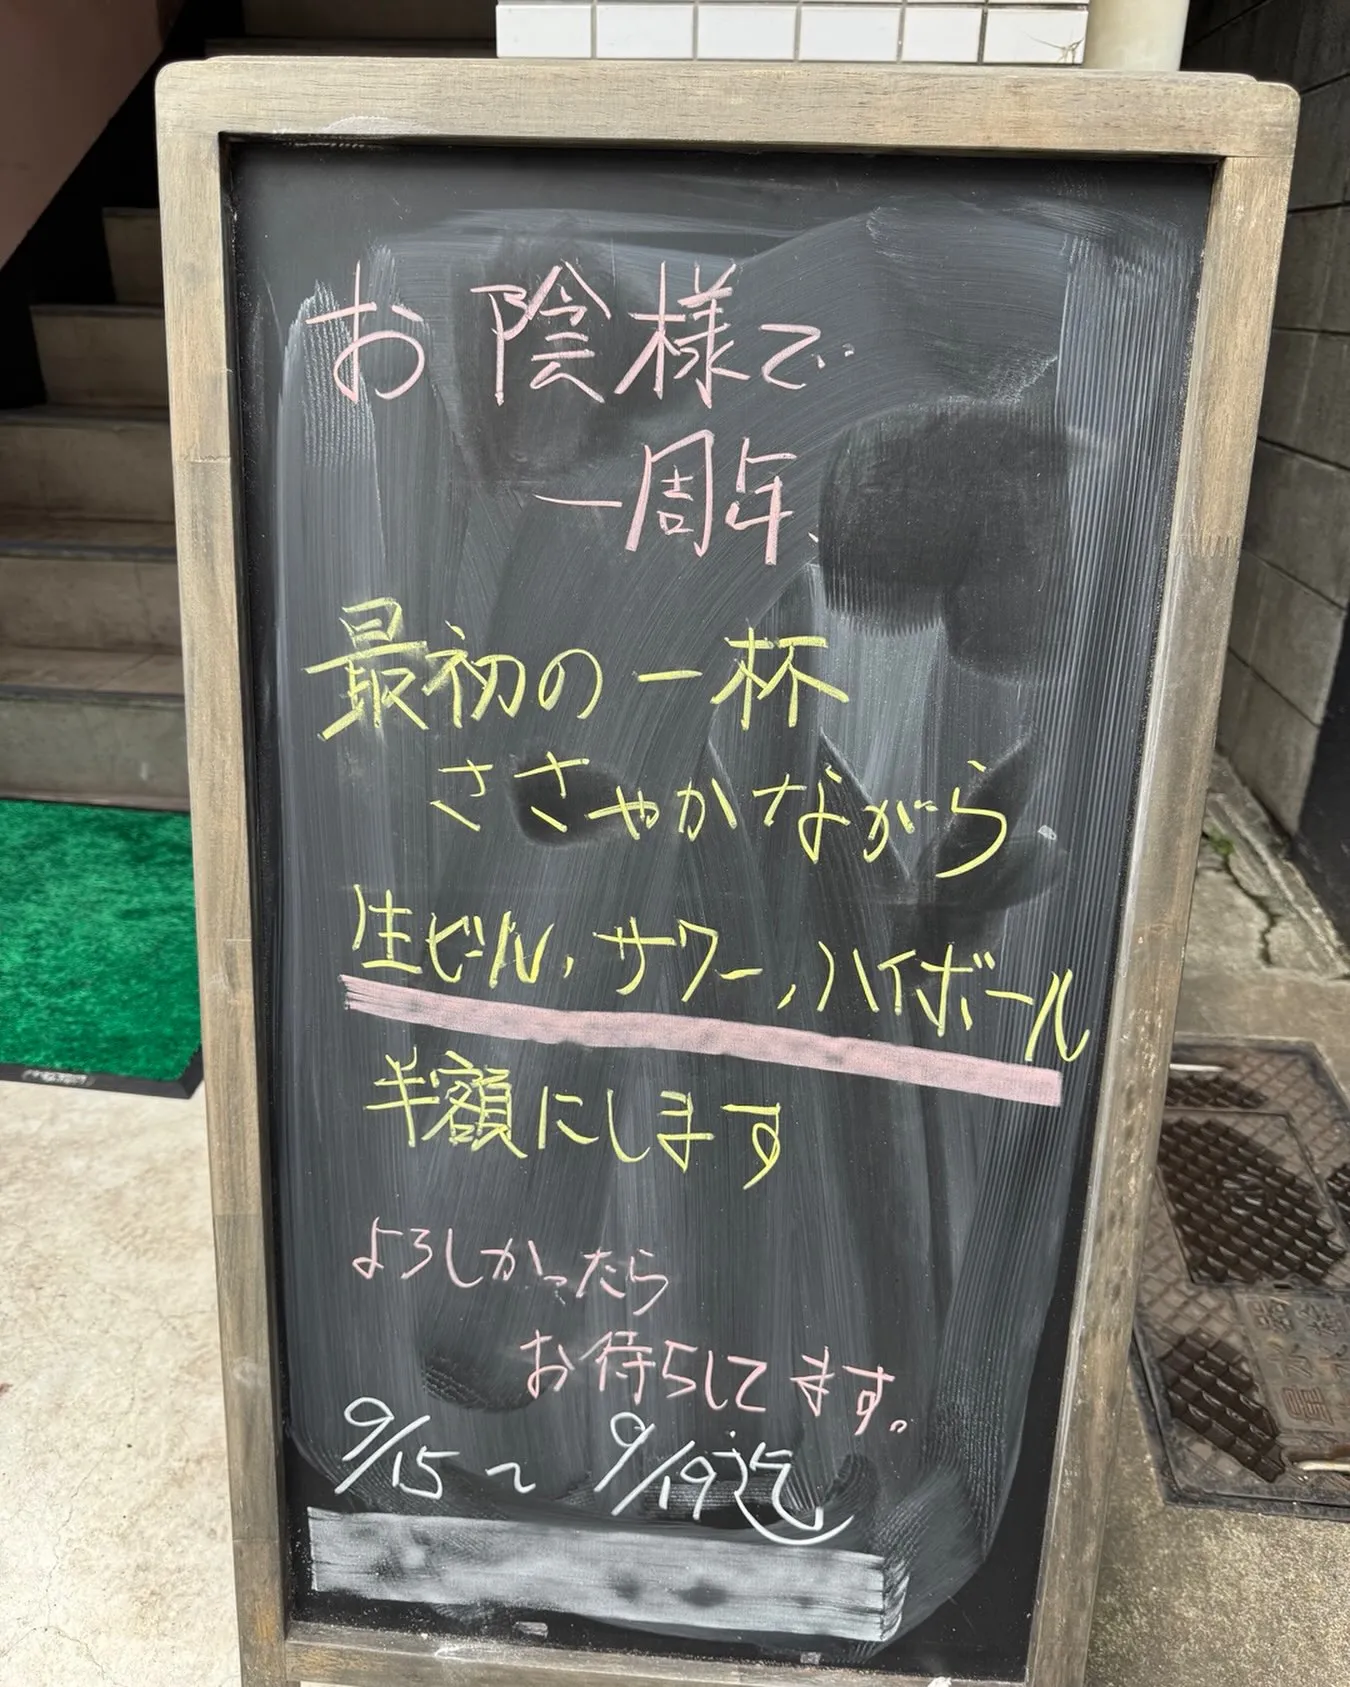 お陰様で
一周年、
最初の一杯
ささやかながら
生ビール、サワー、ハイボール
半額にします
よろしかったら
お待ちしてます。
9/15〜9/19迄